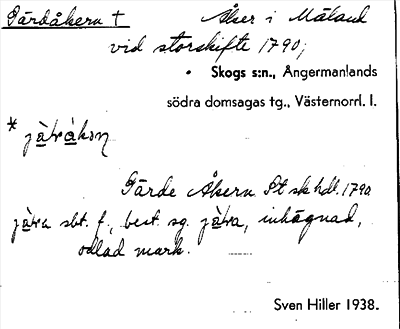 Gärdåkern †   Åker i Måland
vid storskifte 1790;
• Skogs s:n., Ångermanlands
södra domsagas tg., Västernorrl. l.
* jàràkɔn
Gärde Åkern St sk hdl. 1790
sbt. f., best. sg. inhägnad,
odlad mark.
Sven Hiller 1938.